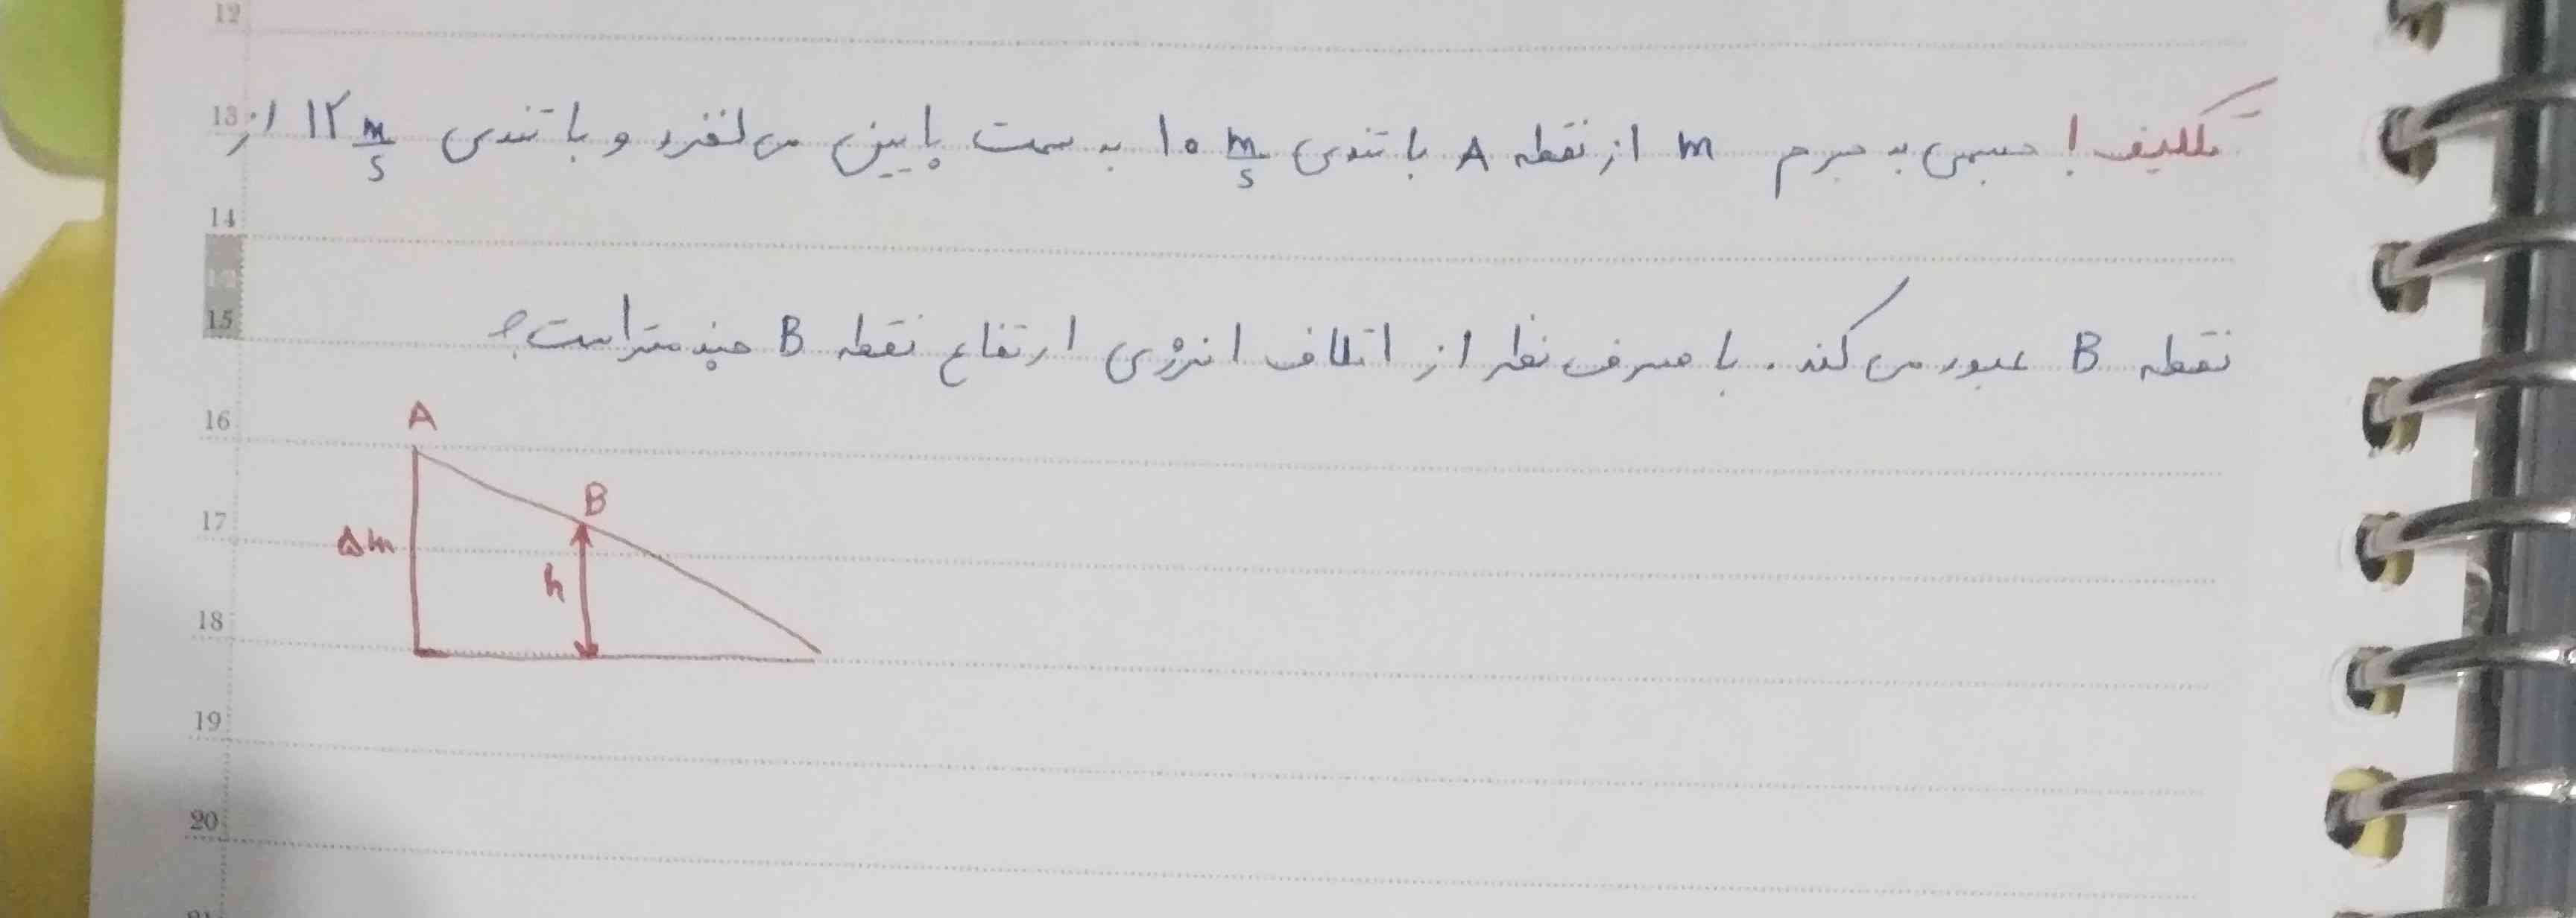 12
13 تکلیف! جسمی به جرم m از نقطه A با تندی ۱۰ m/s به سمت پایین می لغزد و با تندی ۱۲ m/s از
14
15 نقطه B عبور می کند. با صرف نظر از اتلاف انرژی ارتفاع نقطه B چند متر است؟
16 A
B
17 ۵m
h
18
19
20
21